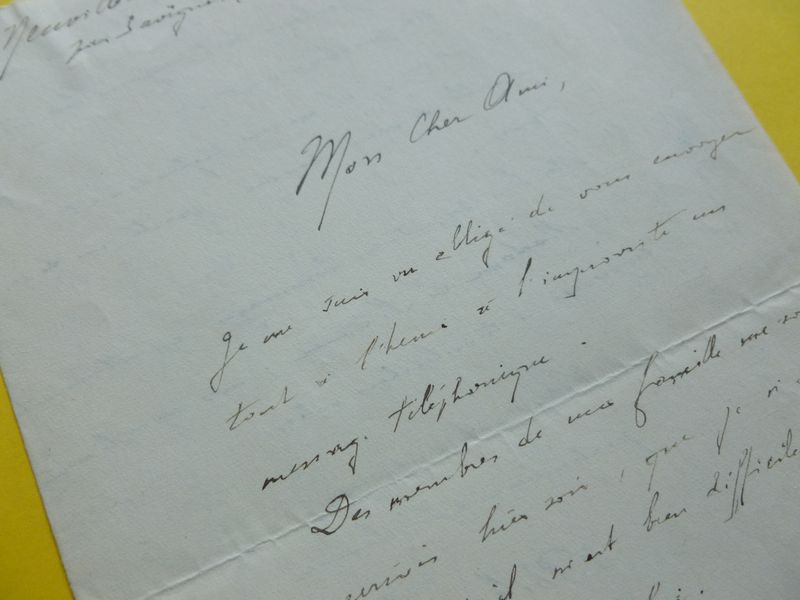 par Savign
Mon Cher Ami,
Je me suis vu obligé de vous envoyer
tout à l'heure à l'improviste un
message téléphonique.
Des membres de ma famille me so
hier soir, que je n
il m'est bien difficile